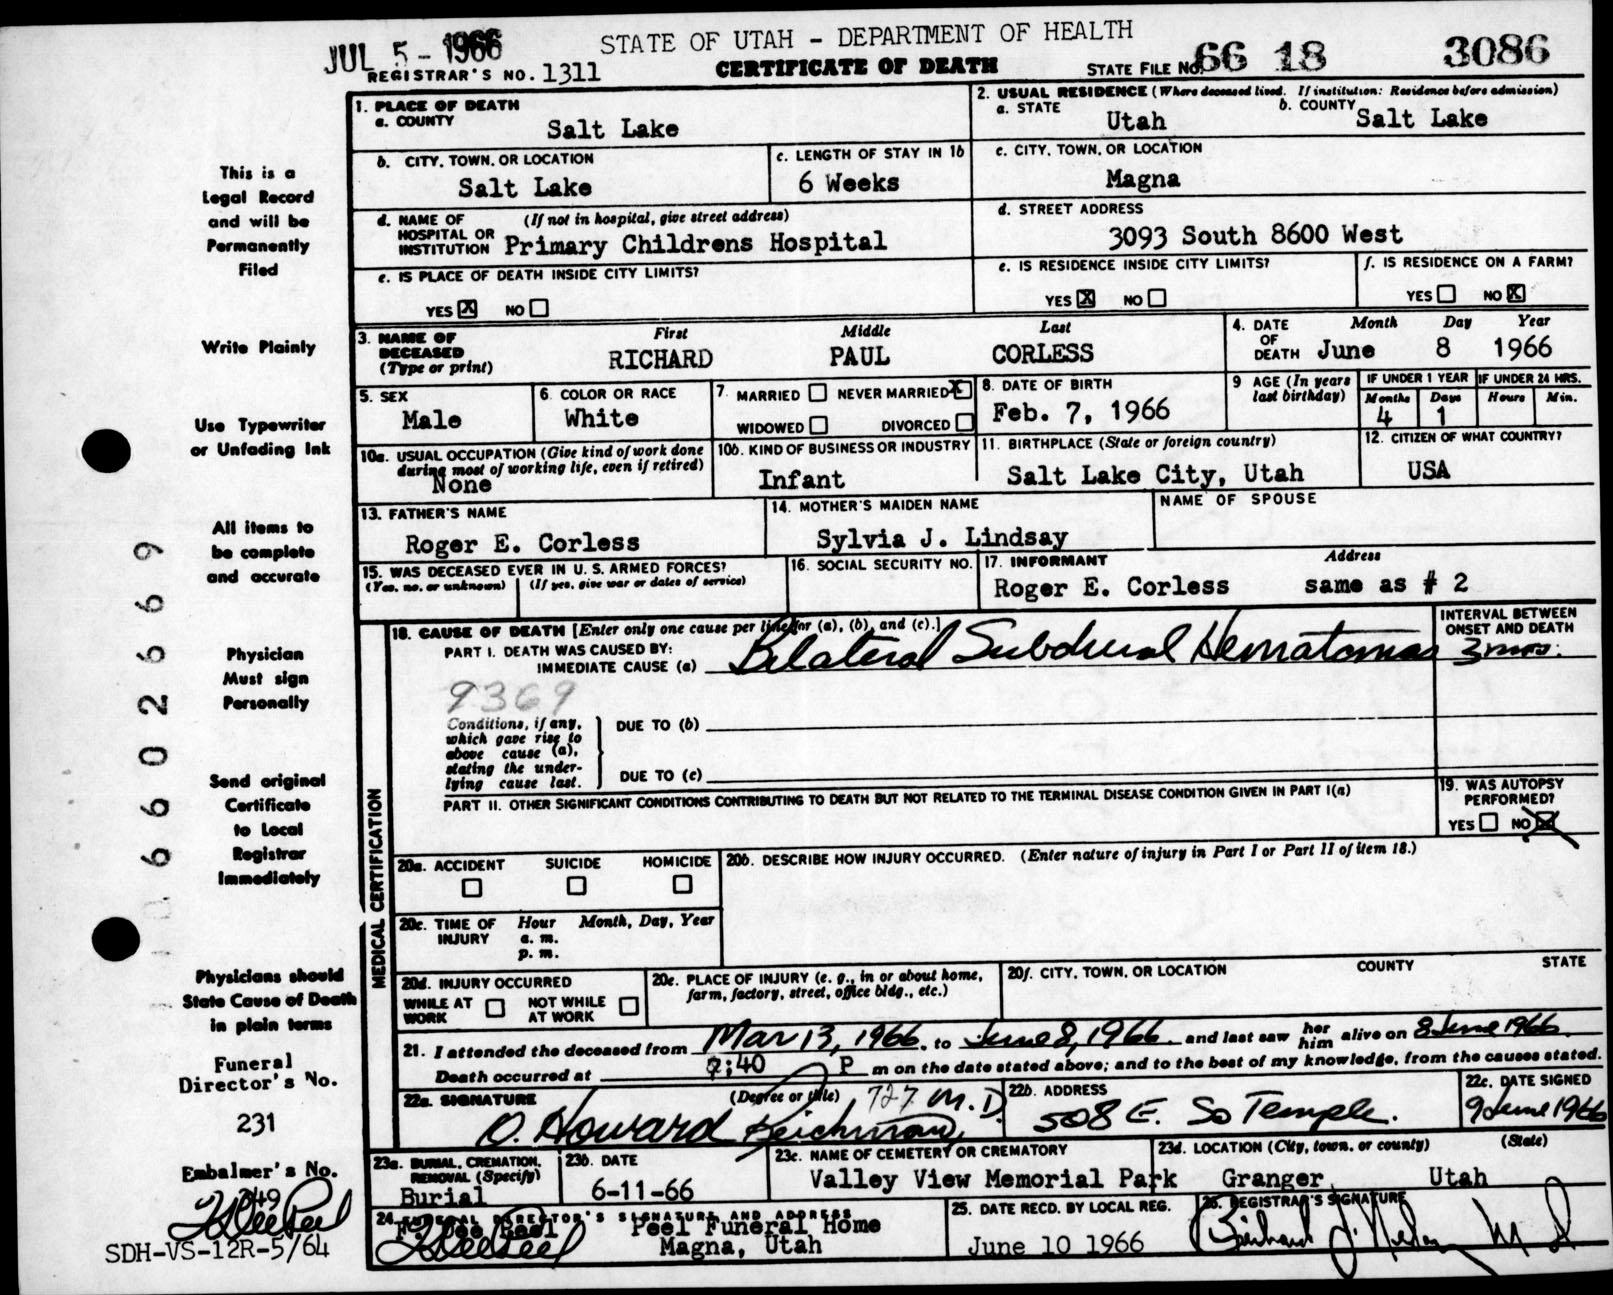 JUL 5 - 1966
STATE OF UTAH - DEPARTMENT OF HEALTH
REGISTRAR'S NO. 1311
CERTIFICATE OF DEATH
STATE FILE NO. 66 18 3086
1. PLACE OF DEATH
a. COUNTY
Salt Lake
2. USUAL RESIDENCE (Where deceased lived. If institution: Residence before admission)
a. STATE
Utah
b. COUNTY
Salt Lake
b. CITY, TOWN, OR LOCATION
Salt Lake
c. LENGTH OF STAY IN 1b
6 Weeks
c. CITY, TOWN, OR LOCATION
Magna
d. NAME OF HOSPITAL OR INSTITUTION
(If not in hospital, give street address)
Primary Childrens Hospital
d. STREET ADDRESS
3093 South 8600 West
e. IS PLACE OF DEATH INSIDE CITY LIMITS?
YES X NO
e. IS RESIDENCE INSIDE CITY LIMITS?
YES X NO
f. IS RESIDENCE ON A FARM?
YES NO X
3. NAME OF DECEASED
(Type or print)
First Middle Last
RICHARD PAUL CORLESS
4. DATE OF DEATH
Month Day Year
June 8 1966
5. SEX
Male
6. COLOR OR RACE
White
7. MARRIED NEVER MARRIED X
WIDOWED DIVORCED
8. DATE OF BIRTH
Feb. 7, 1966
9 AGE (In years last birthday)
IF UNDER 1 YEAR
Months Days
4 1
IF UNDER 24 HRS.
Hours Min.
10a. USUAL OCCUPATION (Give kind of work done during most of working life, even if retired)
None
10b. KIND OF BUSINESS OR INDUSTRY
Infant
11. BIRTHPLACE (State or foreign country)
Salt Lake City, Utah
12. CITIZEN OF WHAT COUNTRY?
USA
13. FATHER'S NAME
Roger E. Corless
14. MOTHER'S MAIDEN NAME
Sylvia J. Lindsay
NAME OF SPOUSE
15. WAS DECEASED EVER IN U. S. ARMED FORCES?
(Yes, no, or unknown) (If yes, give war or dates of service)
16. SOCIAL SECURITY NO.
17. INFORMANT
Address
Roger E. Corless same as # 2
18. CAUSE OF DEATH [Enter only one cause per line for (a), (b), and (c).]
PART I. DEATH WAS CAUSED BY:
IMMEDIATE CAUSE (a) Bilateral Subdural Hematomas
INTERVAL BETWEEN ONSET AND DEATH
3 mos.
9369
Conditions, if any, which gave rise to above cause (a), stating the underlying cause last.
DUE TO (b)
DUE TO (c)
PART II. OTHER SIGNIFICANT CONDITIONS CONTRIBUTING TO DEATH BUT NOT RELATED TO THE TERMINAL DISEASE CONDITION GIVEN IN PART I(a)
19. WAS AUTOPSY PERFORMED?
YES NO X
MEDICAL CERTIFICATION
20a. ACCIDENT SUICIDE HOMICIDE
20b. DESCRIBE HOW INJURY OCCURRED. (Enter nature of injury in Part I or Part II of item 18.)
20c. TIME OF INJURY
Hour Month, Day, Year
a. m.
p. m.
20d. INJURY OCCURRED
WHILE AT WORK NOT WHILE AT WORK
20e. PLACE OF INJURY (e. g., in or about home, farm, factory, street, office bldg., etc.)
20f. CITY, TOWN, OR LOCATION COUNTY STATE
21. I attended the deceased from Mar 13, 1966, to June 8, 1966 and last saw her him alive on 8 June 1966
Death occurred at :40 P m on the date stated above; and to the best of my knowledge, from the causes stated.
22a. SIGNATURE (Degree or title)
O. Howard Reichman, 727 M.D.
22b. ADDRESS
508 E. So Temple.
22c. DATE SIGNED
9 June 1966
23a. BURIAL, CREMATION, REMOVAL (Specify)
Burial
23b. DATE
6-11-66
23c. NAME OF CEMETERY OR CREMATORY
Valley View Memorial Park
23d. LOCATION (City, town, or county) (State)
Granger, Utah
24. FUNERAL DIRECTOR'S SIGNATURE AND ADDRESS
Peel Funeral Home
Magna, Utah
25. DATE RECD. BY LOCAL REG.
June 10 1966
26. REGISTRAR'S SIGNATURE
This is a
Legal Record
and will be
Permanently
Filed
Write Plainly
Use Typewriter
or Unfading Ink
All items to
be complete
and accurate
Physician
Must sign
Personally
Send original
Certificate
to Local
Registrar
Immediately
Physicians should
State Cause of Death
in plain terms
Funeral
Director's No.
231
Embalmer's No.
SDH-VS-12R-5/64
6602669